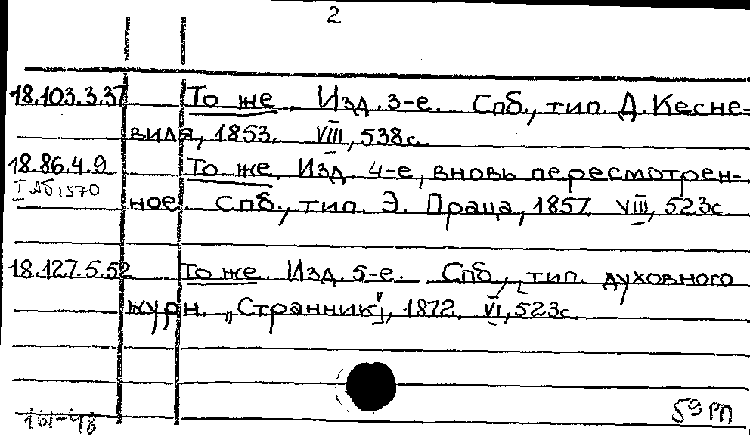 2
18.103.3.37 То же. Изд. 3-е. Спб., тип. Д. Кесне-
виля, 1853. VIII, 538с.
18.86.4.9 То же. Изд. 4-е, вновь пересмотрен-
ное. Спб., тип. Э. Праца, 1857. VIII, 523с.
18.127.5.52 То же. Изд. 5-е. Спб., тип. духовного
журн. „Странник", 1872. VI, 523с.
59 РП